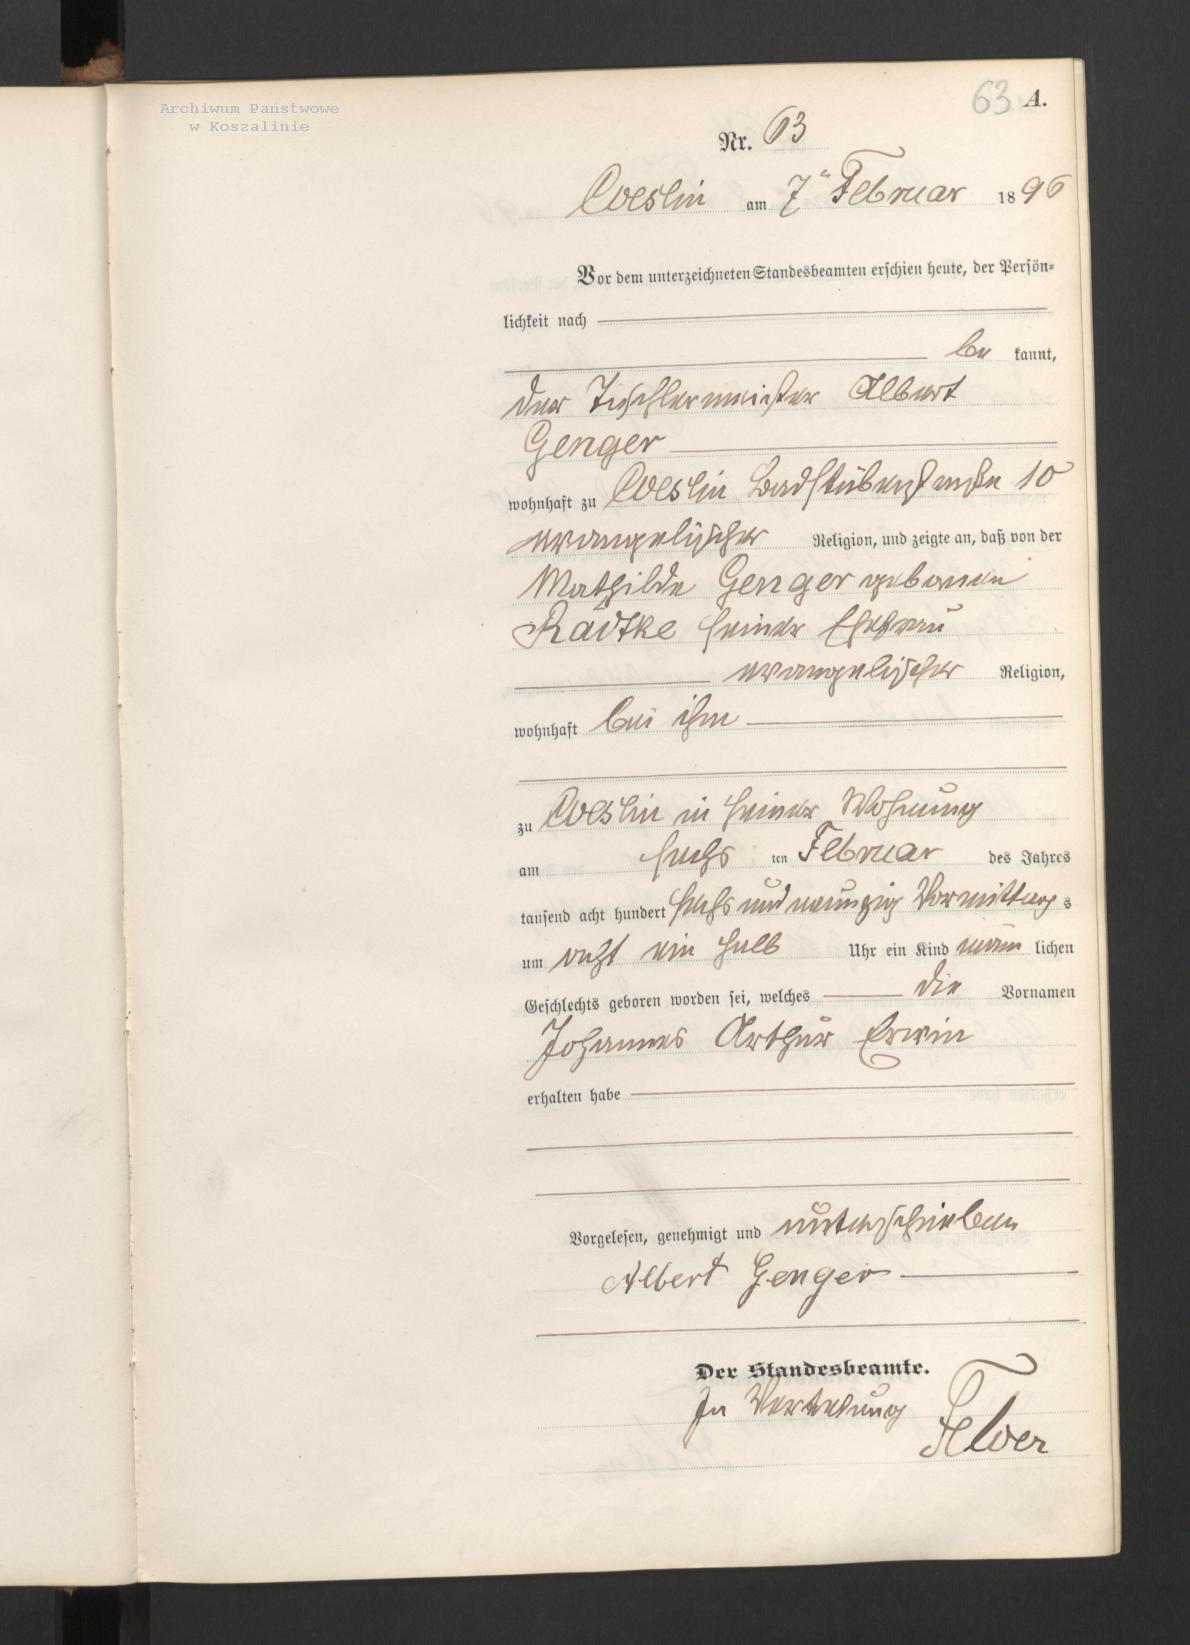 Archiwum Państwowe
w Koszalinie
63 A.
Nr. 63
Coeslin am 7n Februar 1896
Vor dem unterzeichneten Standesbeamten erschien heute, der Persön-
lichkeit nach
be kannt,
der Tischlermeister Albert
Genger
wohnhaft zu Coeslin Badstüberstraße 10
evangelischer Religion, und zeigte an, daß von der
Mathilde Genger geborenen
Radtke seiner Ehefrau
evangelischer Religion,
wohnhaft bei ihm
zu Coeslin in seiner Wohnung
am sechs ten Februar des Jahres
tausend acht hundert sechs und neunzig Vormittag s
um acht ein halb Uhr ein Kind männ lichen
Geschlechts geboren worden sei, welches die Vornamen
Johannes Arthur Erwin
erhalten habe
Vorgelesen, genehmigt und unterschrieben
Albert Genger
Der Standesbeamte.
In Vertretung